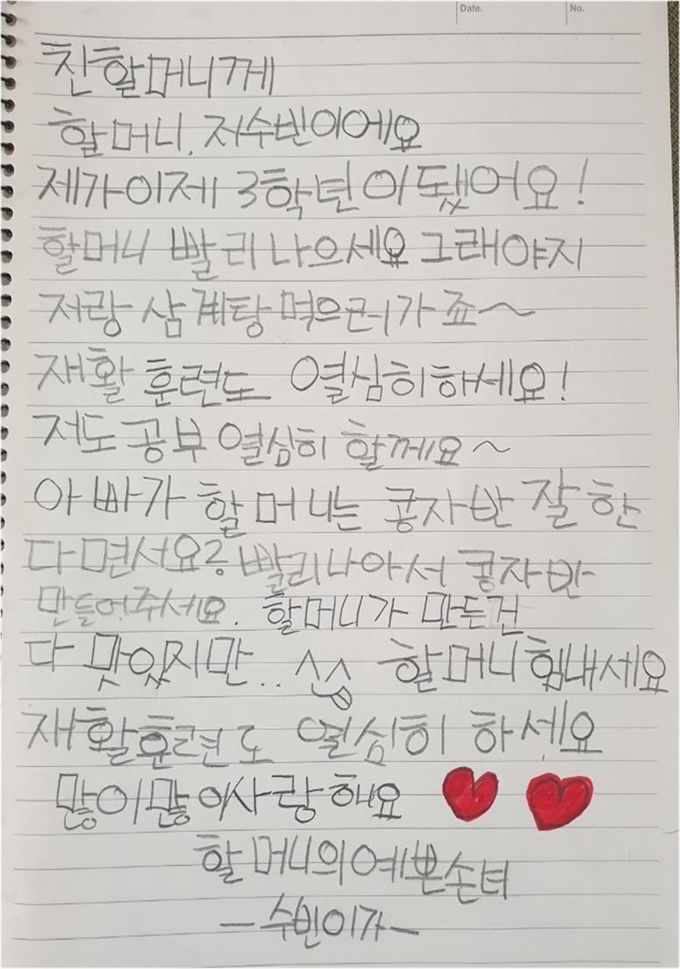 Date.
No.
찬할머니께
할머니, 저수빈이에요
제가이제 3학년이됐어요!
할머니 빨리나으세요 그래야지
저랑 삼계탕 먹으러가죠~
재활 훈련도 열심히하세요!
저도 공부 열심히 할께요~
아빠가 할머니는 콩자반 잘한
다면서요? 빨리나아서 콩자반
만들어주세요. 할머니가 만든건
다 맛있지만.. ^^ 할머니 힘내세요
재활훈련도 열심히 하세요
많이많이사랑해요
할머니의예쁜손녀
-수빈이가-